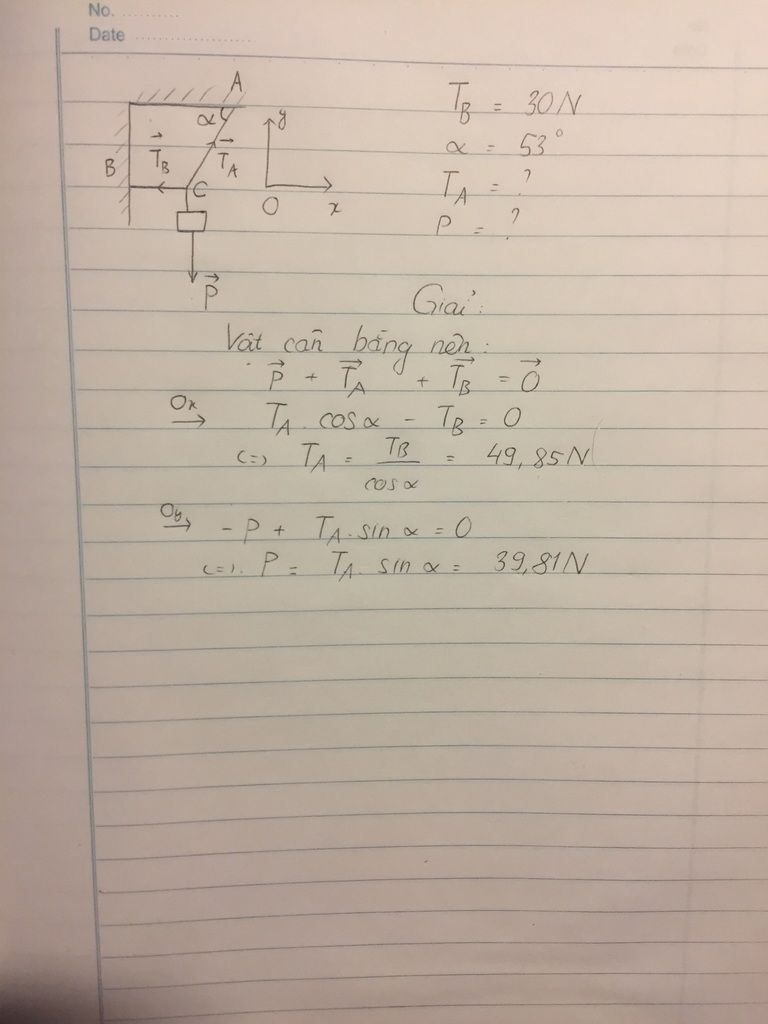 No. ..........
Date .....................
A
α
y
T_B = 30N
B
T_B
T_A
α = 53°
C
O
x
T_A = ?
P = ?
P
Giải:
Vật cân bằng nên:
P + T_A + T_B = 0
Ox → T_A . cosα - T_B = 0
(=) T_A = T_B / cosα = 49,85N
Oy → - P + T_A . sin α = 0
(=) . P = T_A . sin α = 39,81N